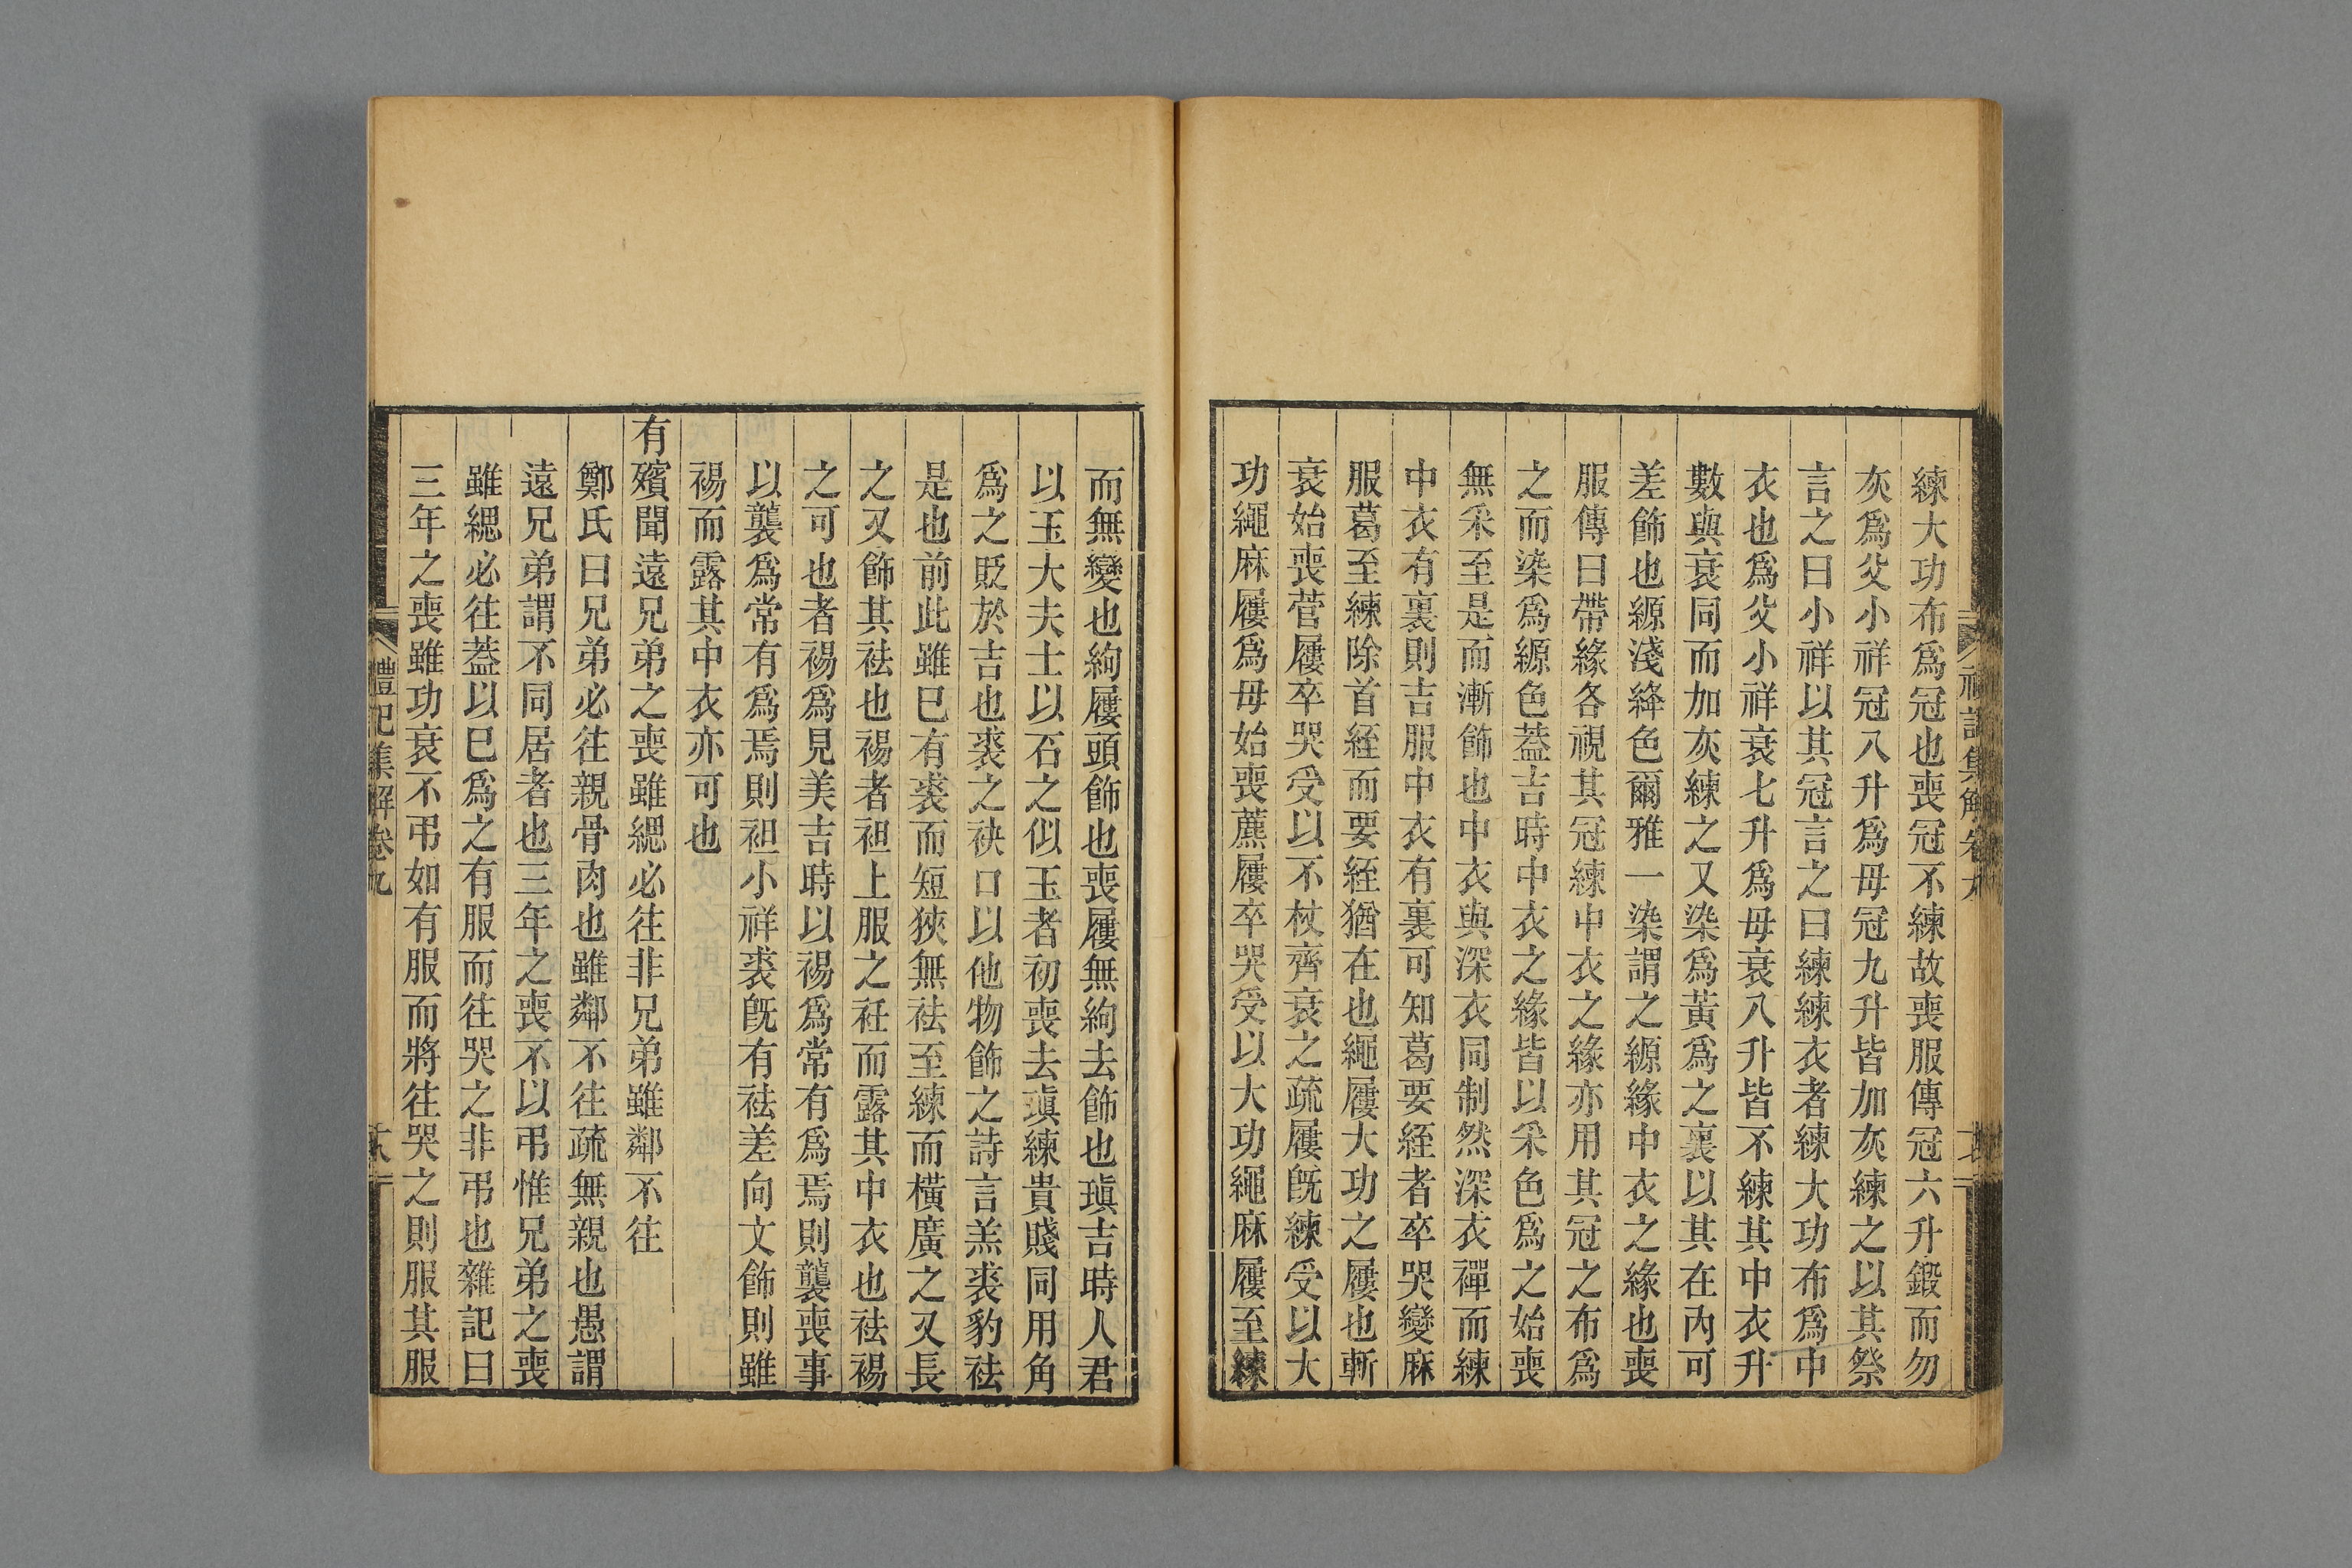 練大功布爲冠也喪冠不練故喪服傳冠六升鍛而勿
灰爲父小祥冠八升爲母冠九升皆加灰練之以其祭
言之曰小祥以其冠言之曰練練衣者練大功布爲中
衣也爲父小祥衰七升爲母衰八升皆不練其中衣升
數與衰同而加灰練之又染爲黃爲之裏以其在內可
差飾也縓淺絳色爾雅一染謂之縓緣中衣之緣也喪
服傳曰帶緣各視其冠練中衣之緣亦用其冠之布爲
之而染爲縓色蓋吉時中衣之緣皆以采色爲之始喪
無采至是而漸飾也中衣與深衣同制然深衣禪而練
中衣有裏則吉服中衣有裏可知葛要絰者卒哭變麻
服葛至練除首絰而要絰猶在也繩屨大功之屨也斬
衰始喪菅屨卒哭受以不杖齊衰之疏屨旣練受以大
功繩麻屨爲母始喪藨屨卒哭受以大功繩麻屨至練
而無變也絇屨頭飾也喪屨無絇去飾也瑱吉時人君
以玉大夫士以石之似玉者初喪去瑱練貴賤同用角
爲之貶於吉也裘之袂口以他物飾之詩言羔裘豹袪
是也前此雖已有裘而短狹無袪至練而橫廣之又長
之又飾其袪也裼者袒上服之衽而露其中衣也袪裼
之可也者裼爲見美吉時以裼爲常有爲焉則襲喪事
以襲爲常有爲焉則袒小祥裘旣有袪差向文飾則雖
裼而露其中衣亦可也
有殯聞遠兄弟之喪雖緦必往非兄弟雖鄰不往
鄭氏曰兄弟必往親骨肉也雖鄰不往疏無親也愚謂
遠兄弟謂不同居者也三年之喪不以弔惟兄弟之喪
雖緦必往蓋以已爲之有服而往哭之非弔也雜記曰
三年之喪雖功衰不弔如有服而將往哭之則服其服
禮記集解卷九